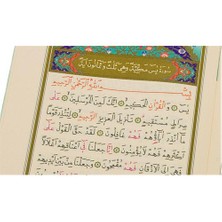 سورة يس مكية وهى ثلث وثمانون آية
بسم الله الرحمن الرحيم
يس والقرآن الحكيم انك لمن المرسلين على
صراط مستقيم تنزيل العزيز الرحيم لتنذر قوما
ما انذر آباؤهم فهم غافلون لقد حق القول على
اكثرهم فهم لا يؤمنون انا جعلنا فى اعناقهم
اغلالا فهى الى الاذقان فهم مقمحون وجعلنا من